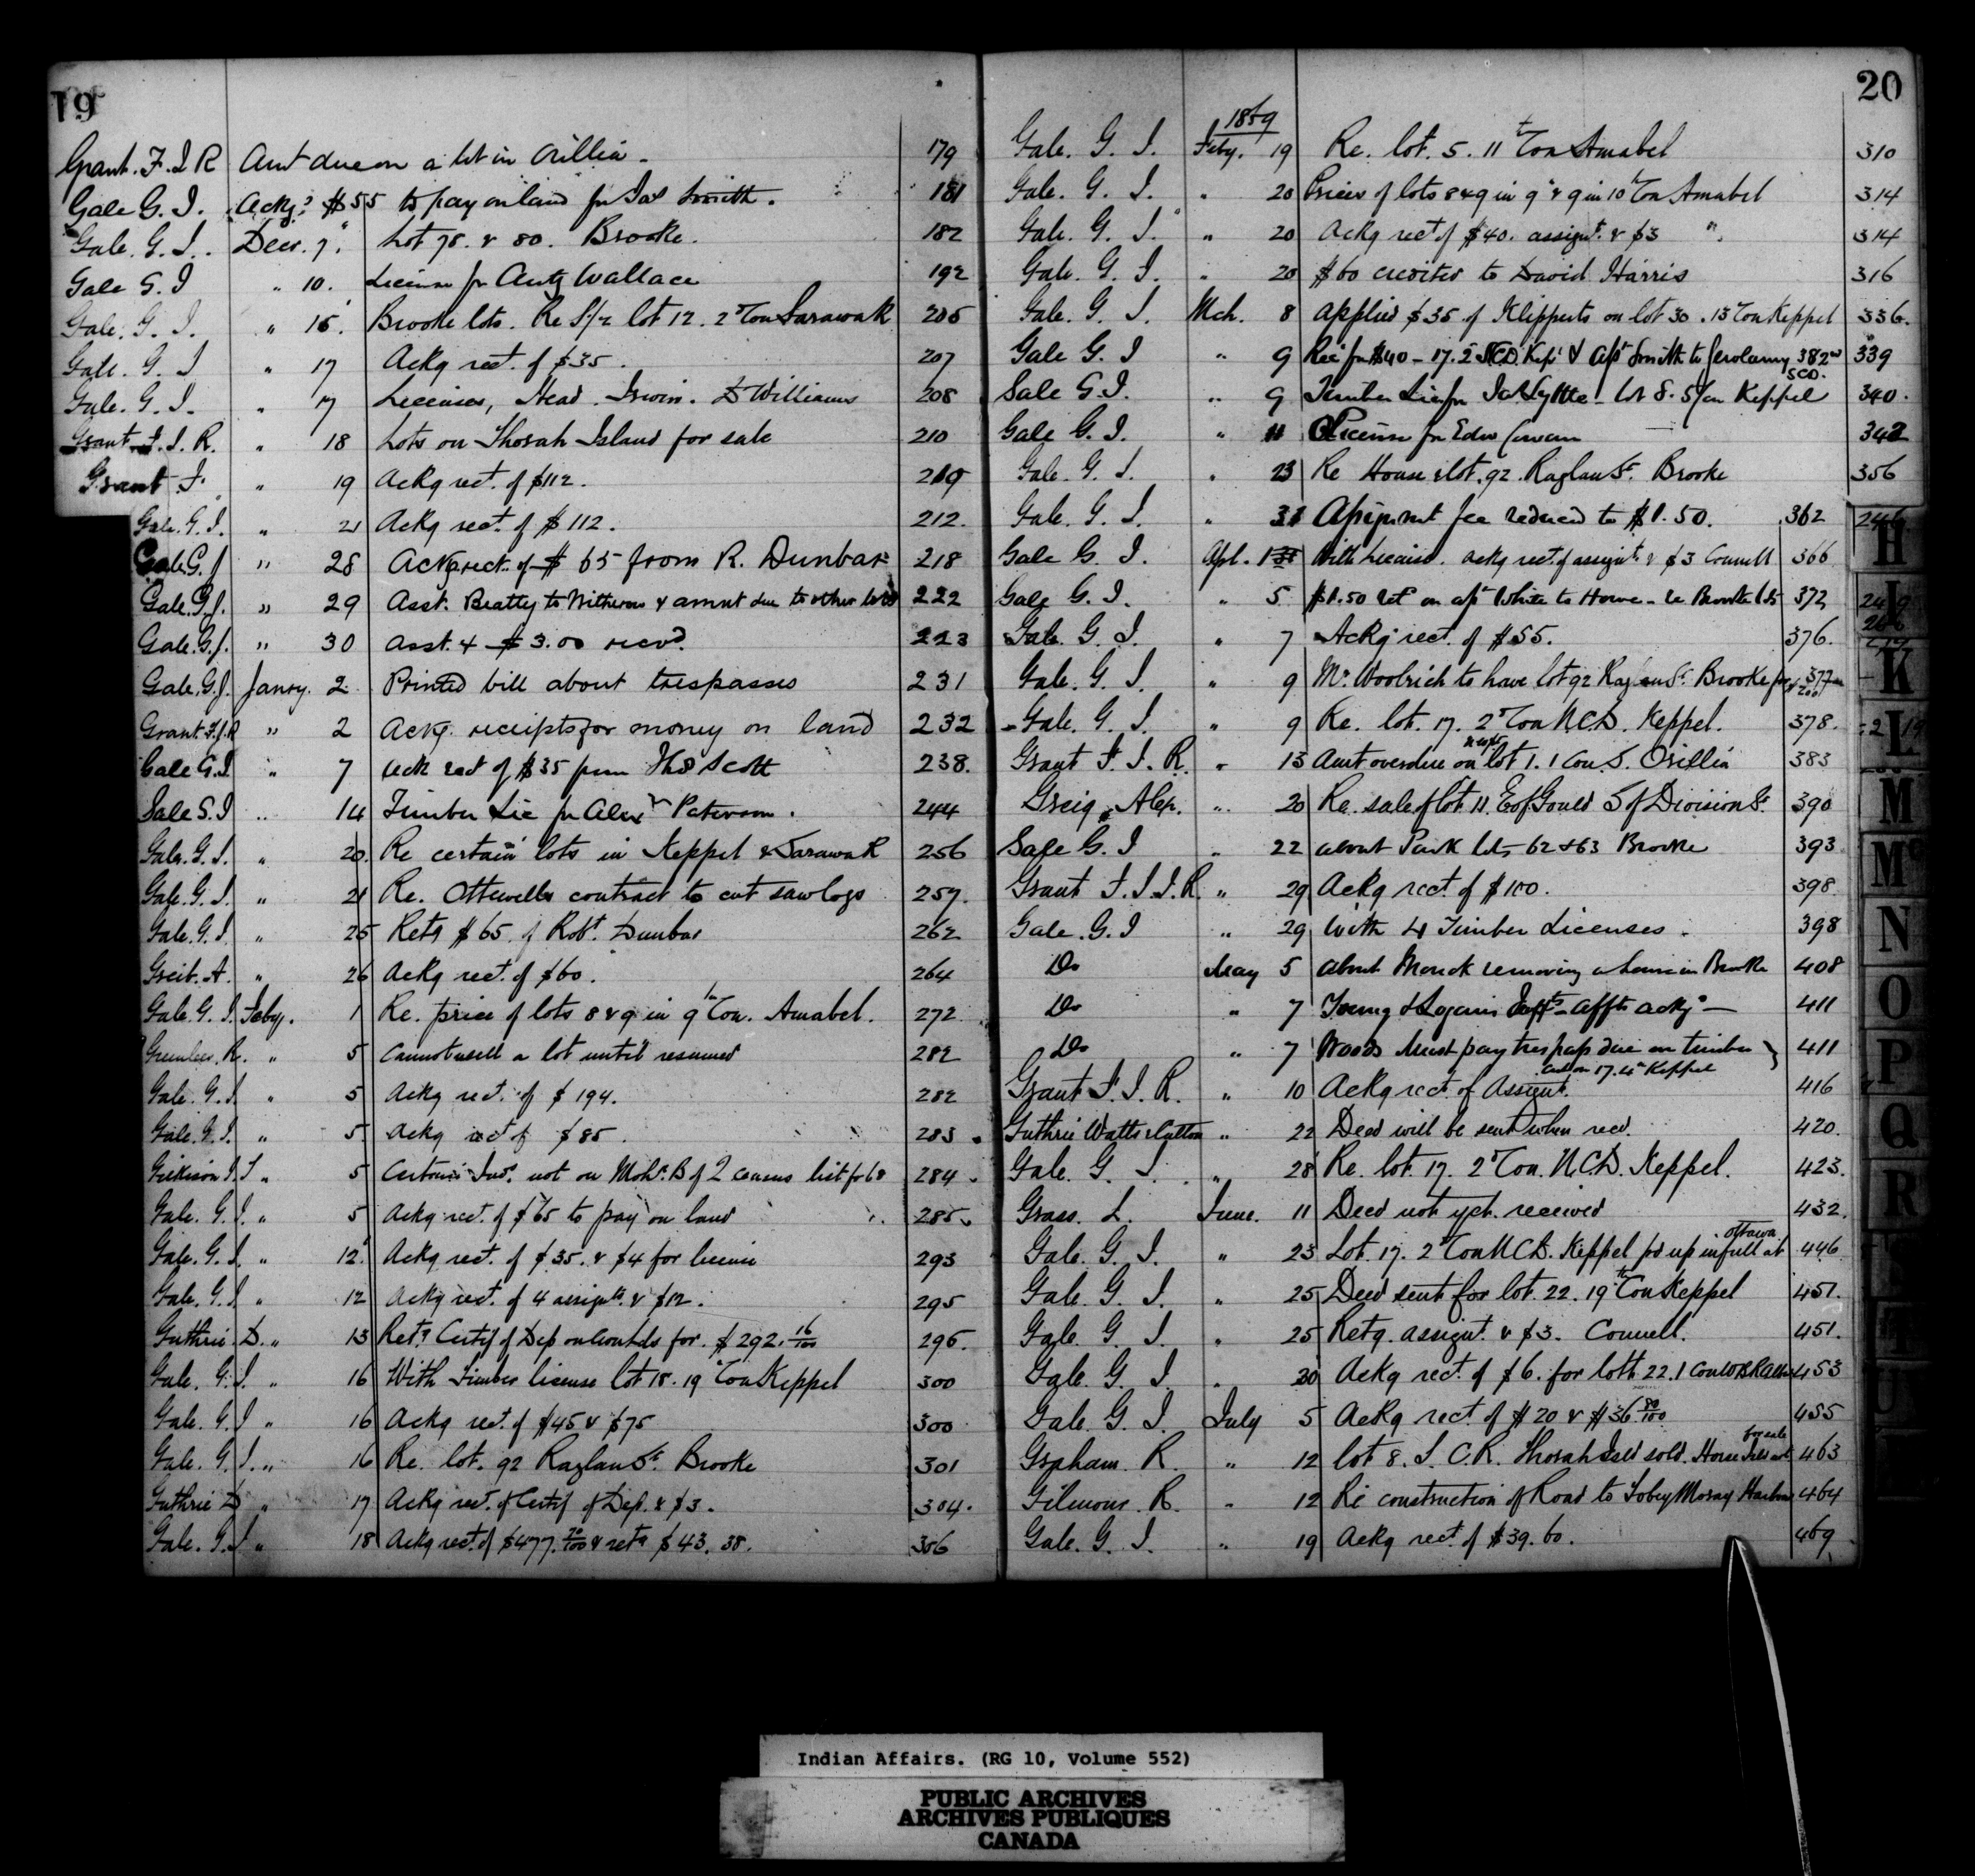 19
Grant. F. I. R Amt due on a lot in Orillia - 179
Gale G. I. Ackg? $55 to pay on land for Jas Smith. 181
Gale. G. I. Decr. 7. Lot 78. & 80. Brooke. 182
Gale G. I " 10. License for Wallace 192
Gale. G. I. " 15. Brooke lots. Re S/2 lot 12. 2d Con Sarawak 205
Gale. G. I " 17 Ackg rect. of $35. 207
Gale. G. I. " 17 Licenses, Head. Irwin. & Williams 208
Grant F. I. R. " 18 Lots on Thorah Island for sale 210
Grant F. " 19 Ackg rect. of $112. 219
Gale. G. I. " 21 Ackg rect. of $112. 212.
Gale G. J " 28 Ackg rect. of $65 from R. Dunbar 218
Gale. G. J. " 29 Asst. Beatty to Witherow & amnt due to other lots 222
Gale. G. J. " 30 Asst. & $3.00 recvd. 223
Gale. G. J. Janry. 2 Printed bill about trespasses 231
Grant F. J. R " 2 Ackg. receipts for money on land 232
Gale G. I " 7 Ack rect of $35 from Thos Scott 238.
Gale G. I " 14 Timber Lic for Alexr Paterson. 244
Gale. G. I. " 20. Re certain lots in Keppel & Sarawak 256
Gale. G. I. " 21 Re. Ottewells contract to cut saw logs 257.
Gale. G. I. " 25 Retg $65 of Robt. Dunbar 262
Greib. A. " 26 Ackg rect. of $60. 264
Gale. G. I. Feby. 1 Re. price of lots 8 & 9 in 9th Con. Amabel. 272
R. " 5 Cannot sell a lot until resumed 282
Gale. G. I " 5 Ackg rect. of $194. 282
Gale. G. I. " 5. Ackg rect of $85. 283
Gilkison J. T " 5 Certain Inds. not on Mohk. B of Q census list for 68 284
Gale. G. I. " 5 Ackg rect. of $65 to pay on land 285
Gale. G. I. " 12 Ackg rect. of $35. & $4 for license 293
Gale. G. I " 12 Ackg rect. of 4 assigts. & $12. 295
Guthrie. D. " 13 Retg Certif of Dep on for. $292.16/100 296.
Gale. G. I. " 16 With Timber license lot 18. 19 Con Keppel 300
Gale. G. I " 16 Ackg rect. of $45 & $75 300
Gale. G. I. " 16 Re. lot. 92 Raglan St. Brooke 301
Guthrie D " 17 Ackg rect. of Certif of Dep. & $3. 304.
Gale. G. I " 18 Ackg rect. of $477.20/100 & retg $43.38. 306
20
1869
Gale. G. I. Feby. 19 Re. lot. 5. 11th Con Amabel 310
Gale. G. I. " 20 Prices of lots 8 & 9 in 9 & 9 in 10th Con Amabel 314
Gale. G. I. " 20 Ackg rect of $40. assignt. & $3 ". 314
Gale. G. I. " 20 $60 credited to David Harris 316
Gale. G. I. Mch. 8 Applied $35 of Klipperts on lot 30. 13 Con Keppel 336.
Gale G. I " 9 Rect for $40 - 17. 2 NCD. Kepl & Asst Smith to 38 2nd SCD. 339
Gale G. I. " 9 Timber Lic for Jas Lyttle - Lot 8. 5 Con Keppel 340.
Gale G. I. " 11 License for Edw Cowan 342
Gale. G. I. " 23 Re House & lot. 92. Raglan St. Brooke 356
Gale. G. I. " 31 Assignmt fee reduced to $1.50. 362
Gale G. I. Apl. 1 With License. Ackg rect. of assignt. & $3 Connell 366
Gale G. I. " 5 $1.50 ret on asst White to Howe - re Brooke lots 372
Gale. G. I. " 7 Ackg rect. of $55. 376.
Gale. G. I. " 9 Mr Woolrich to have lot 92 Raglan St. Brooke for $200 377
Gale. G. I. " 9 Re. lot. 17. 2d Con N.C.D. Keppel. 378.
Grant F. I. R. " 13 Amt overdue on lot 1. 1 Con. S. Orillia 383
Greig, Alex. " 20 Re. sale of lot 11. E of Gould S of Division St 390
Gale G. I " 22 about Park lots 62 & 63 Brooke 393
Grant F. I. I. R. " 29 Ackg rect. of $100. 398.
Gale. G. I " 29 With 4 Timber Licenses. 398
Do May 5 about Monck removing a house in Brooke 408
Do " 7 Young & Logans affts ackg - 411
Do " 7 Woods must pay trespass due on timber 411
cut on 17. 4th Keppel
Grant F. I. R. " 10 Ackg rect. of Assignt. 416
Guthrie Watts & Cutten " 22 Deed will be sent when recd. 420.
Gale. G. I. " 28 Re. lot. 17. 2d Con. N.C.D. Keppel. 423.
Grass. L. June. 11 Deed not yet. received 432.
Gale. G. I. " 23 Lot. 17. 2d Con NCD. Keppel pd up in full at Ottawa 446
Gale. G. I. " 25 Deed sent for lot. 22. 19th Con Keppel 451.
Gale. G. I. " 25 Retg. assignt. & $3. Connell. 451.
Gale. G. I. " 30 Ackg rect. of $6. for lot 22. 1 Con 453
Gale. G. I. July 5 Ackg rect. of $20 & $36 80/100 455
Graham. R. " 12 lot 8. S. C. R. Thorah Isld sold. Horse Isld not for sale 463
Gilmour. R. " 12 Re construction of Road to Tobey Moray Harbour 464
Gale. G. I. " 19 Ackg rect. of $39.60. 469
H
I
K
L
M
Mc
N
O
P
Q
R
Indian Affairs. (RG 10, Volume 552)
PUBLIC ARCHIVES
ARCHIVES PUBLIQUES
CANADA